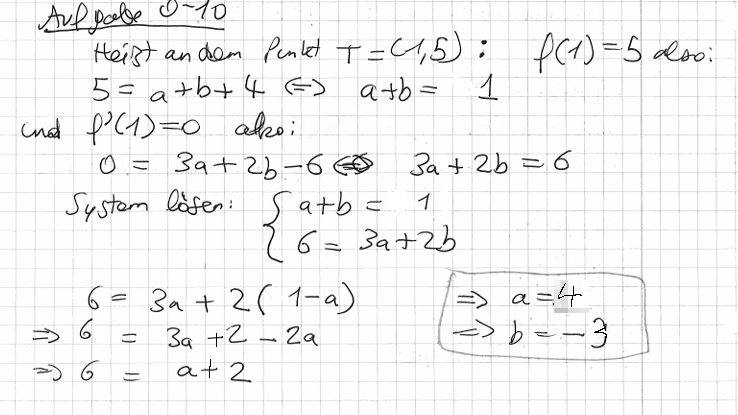 Aufgabe 0-10
Heißt an dem Punkt T=(1,5): f(1)=5 also:
5 = a+b+4 <=> a+b = 1
und f'(1)=0 also:
0 = 3a+2b-6 <=> 3a+2b = 6
System lösen: { a+b = 1
6 = 3a+2b
6 = 3a + 2(1-a)
=> 6 = 3a+2-2a
=> 6 = a+2
=> a=4
=> b=-3